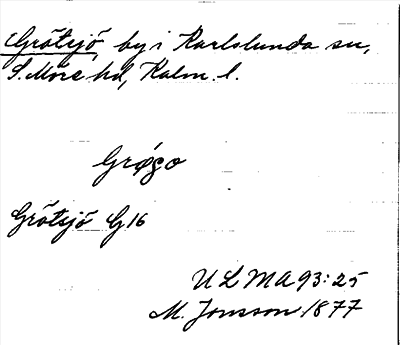 Grötsjö, by i Karlslunda sn,
S. Möre hd, Kalm. l.
Grøso
Grötsjö G16
ULMA 93:25
M. Jonsson 1877